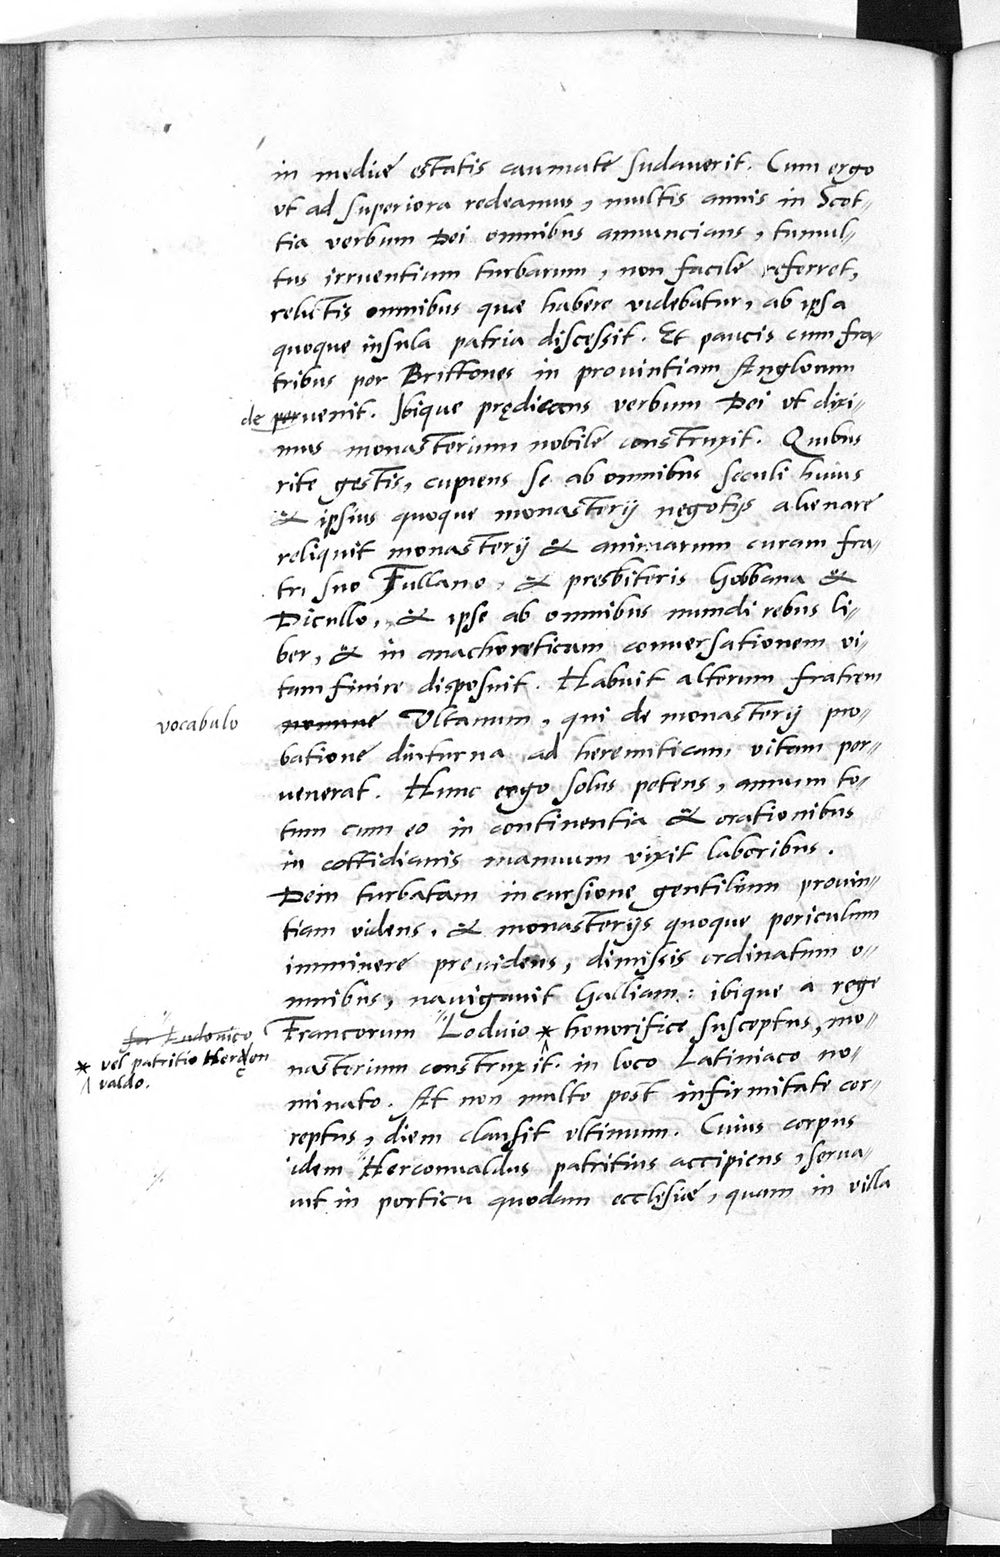 in mediæ estatis caumate sudauerit. Cum ergo
vt ad superiora redeamus, multis annis in Scot-
tia verbum Dei omnibus annuncians, tumul-
tus irruentium turbarum, non facile referret,
relictis omnibus quæ habere videbatur, ab ipsa
quoque insula patria discessit. Et paucis cum fra-
tribus per Brittones in prouintiam Anglorum
de peruenit. Ibique prędicans verbum Dei vt dixi-
mus monasterium nobile construxit. Quibus
rite gestis, cupiens se ab omnibus seculi huius
& ipsius quoque monasterij negotijs alienare
reliquit monasterij & animarum curam fra-
tri suo Fullano, & presbiteris Gobbana &
Dicullo, & ipse ab omnibus mundi rebus li-
ber, & in anachoreticam conuersationem vi-
tam finire disposuit. Habuit alterum fratrem
vocabulo nomine Vltanum, qui de monasterij pro-
batione diuturna ad heremiticam vitam per-
uenerat. Hunc ergo solus petens, annum to-
tum cum eo in continentia & orationibus
in cottidianis manuum vixit laboribus.
Dein turbatam incursione gentilium prouin-
tiam videns, & monasterijs quoque periculum
imminere preuidens, dimissis ordinatum o-
mnibus, nauigauit Galliam: ibique a rege
Francorum Loduio * honorifice susceptus, mo-
Ludouico
* vel patritio Hercon
valdo.
nasterium construxit in loco Latiniaco no-
minato. At non multo post infirmitate cor-
reptus, diem clausit vltimum. Cuius corpus
idem Herconualdus patritius accipiens, serua-
uit in porticu quodam ecclesiæ, quam in villa